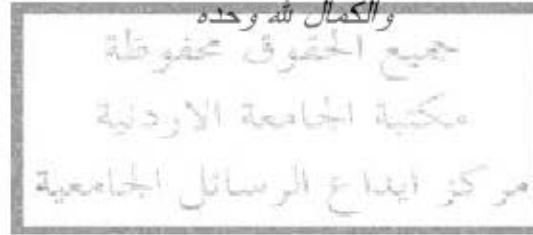 والكمال لله وحده
جميع الحقوق محفوظة
مكتبة الجامعة الاردنية
مركز ايداع الرسائل الجامعية